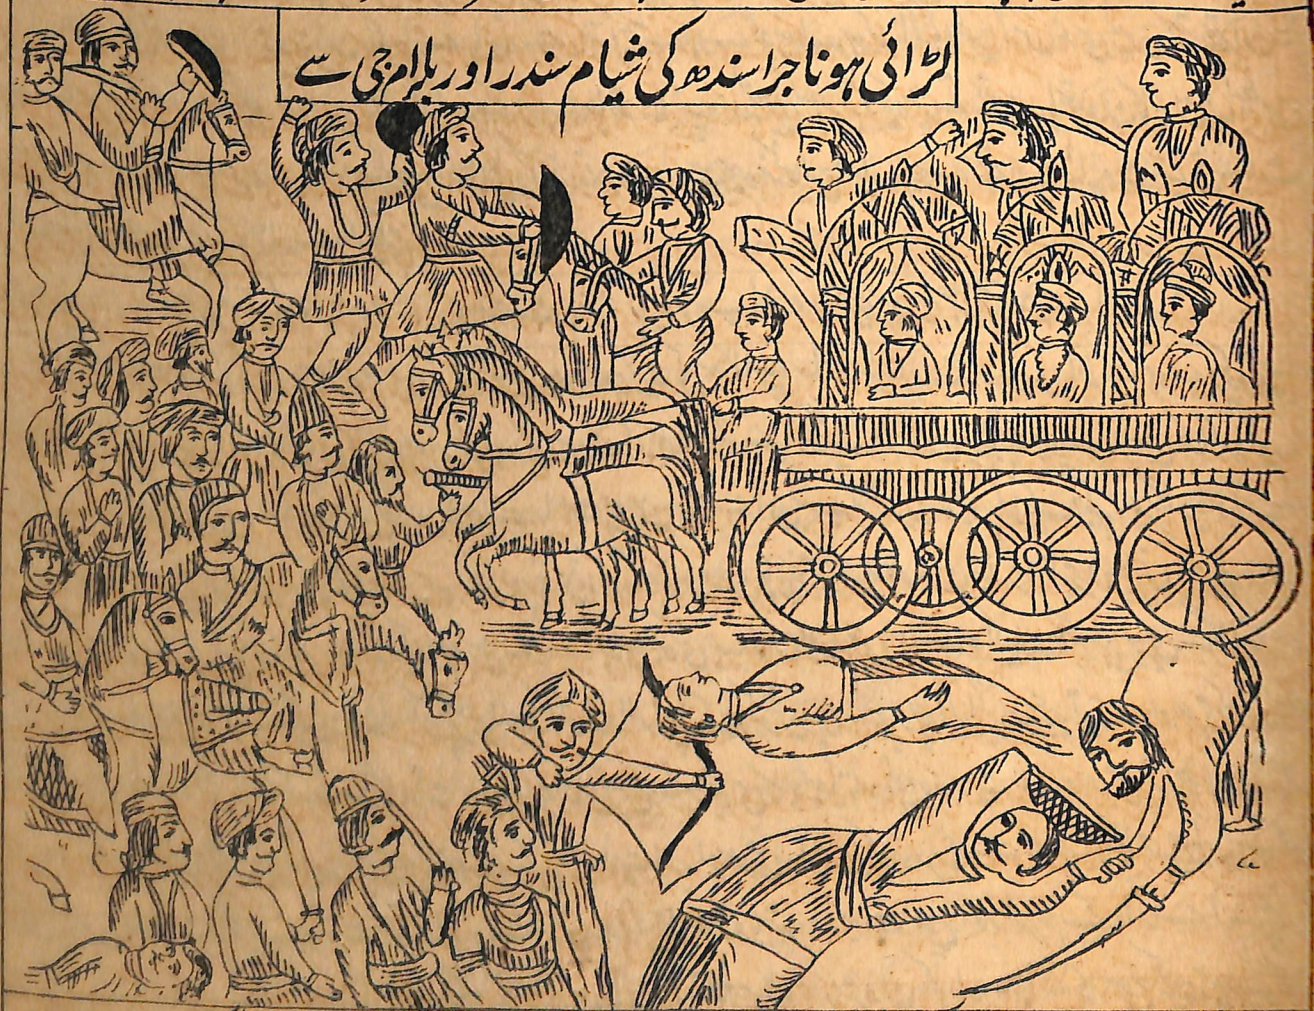 لڑائی ہونا جراسندھ کی شیام سندر اور بلرام جی سے